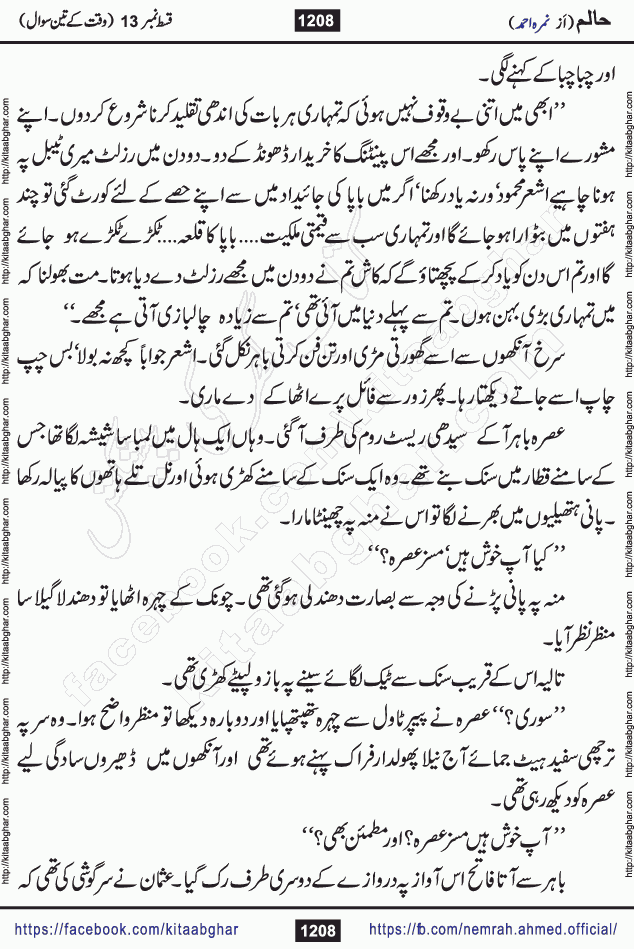 حالم (از نمرہ احمد) 1208 قسط نمبر 13 (وقت کے تین سوال)
اور چبا چبا کے کہنے لگی۔
’’ابھی میں اتنی بے وقوف نہیں ہوئی کہ تمہاری ہر بات کی اندھی تقلید کرنا شروع کر دوں۔ اپنے
مشورے اپنے پاس رکھو۔ اور مجھے اس پینٹنگ کا خریدار ڈھونڈ کے دو۔ دو دن میں رزلٹ میری ٹیبل پہ
ہونا چاہیے اشعر محمود‘ ورنہ یاد رکھنا‘ اگر میں باپا کی جائیداد میں سے اپنے حصے کے لئے کورٹ گئی تو چند
ہفتوں میں بٹوارا ہو جائے گا اور تمہاری سب سے قیمتی ملکیت .... باپا کا قلعہ .... ٹکڑے ٹکڑے ہو جائے
گا اور تم اس دن کو یاد کر کے پچھتاؤ گے کہ کاش تم نے دو دن میں مجھے رزلٹ دے دیا ہوتا۔ مت بھولنا کہ
میں تمہاری بڑی بہن ہوں۔ تم سے پہلے دنیا میں آئی تھی‘ تم سے زیادہ چالبازی آتی ہے مجھے۔‘‘
سرخ آنکھوں سے اسے گھورتی مڑی اور تن فن کرتی باہر نکل گئی۔ اشعر جواباً کچھ نہ بولا‘ بس چپ
چاپ اسے جاتے دیکھتا رہا۔ پھر زور سے فائل پرے اٹھا کے دے ماری۔
عصرہ باہر آ کے سیدھی ریسٹ روم کی طرف آ گئی۔ وہاں ایک ہال میں لمبا سا شیشہ لگا تھا جس
کے سامنے قطار میں سنک بنے تھے۔ وہ ایک سنک کے سامنے کھڑی ہوئی اور نل تلے ہاتھوں کا پیالہ رکھا
۔ پانی ہتھیلیوں میں بھرنے لگا تو اس نے منہ پہ چھینٹا مارا۔
’’کیا آپ خوش ہیں‘ مسز عصرہ؟‘‘
منہ پہ پانی پڑنے کی وجہ سے بصارت دھندلی ہو گئی تھی۔ چونک کے چہرہ اٹھایا تو دھندلا گیلا سا
منظر نظر آیا۔
تالیہ اس کے قریب سنک سے ٹیک لگائے سینے پہ بازو لپیٹے کھڑی تھی۔
’’سوری؟‘‘ عصرہ نے پیپر ٹاول سے چہرہ تھپتھپایا اور دوبارہ دیکھا تو منظر واضح ہوا۔ وہ سر پہ
ترچھی سفید ہیٹ جمائے آج نیلا پھولدار فراک پہنے ہوئے تھی اور آنکھوں میں ڈھیروں سادگی لیے
عصرہ کو دیکھ رہی تھی۔
’’آپ خوش ہیں مسز عصرہ؟ اور مطمئن بھی؟‘‘
باہر سے آتا فاتح اس آواز پہ دروازے کے دوسری طرف رک گیا۔ عثمان نے سرگوشی کی تھی کہ
https://facebook.com/kitaabghar 1208 https://fb.com/nemrah.ahmed.official/
http://kitaabghar.com http://kitaabghar.com http://kitaabghar.com http://kitaabghar.com http://kitaabghar.com http://kitaabghar.com http://kitaabghar.com http://kitaabghar.com
http://kitaabghar.com http://kitaabghar.com http://kitaabghar.com http://kitaabghar.com http://kitaabghar.com http://kitaabghar.com http://kitaabghar.com http://kitaabghar.com
کتاب گھر کی پیشکش
facebook.com/kitaabghar
kitaabghar.com